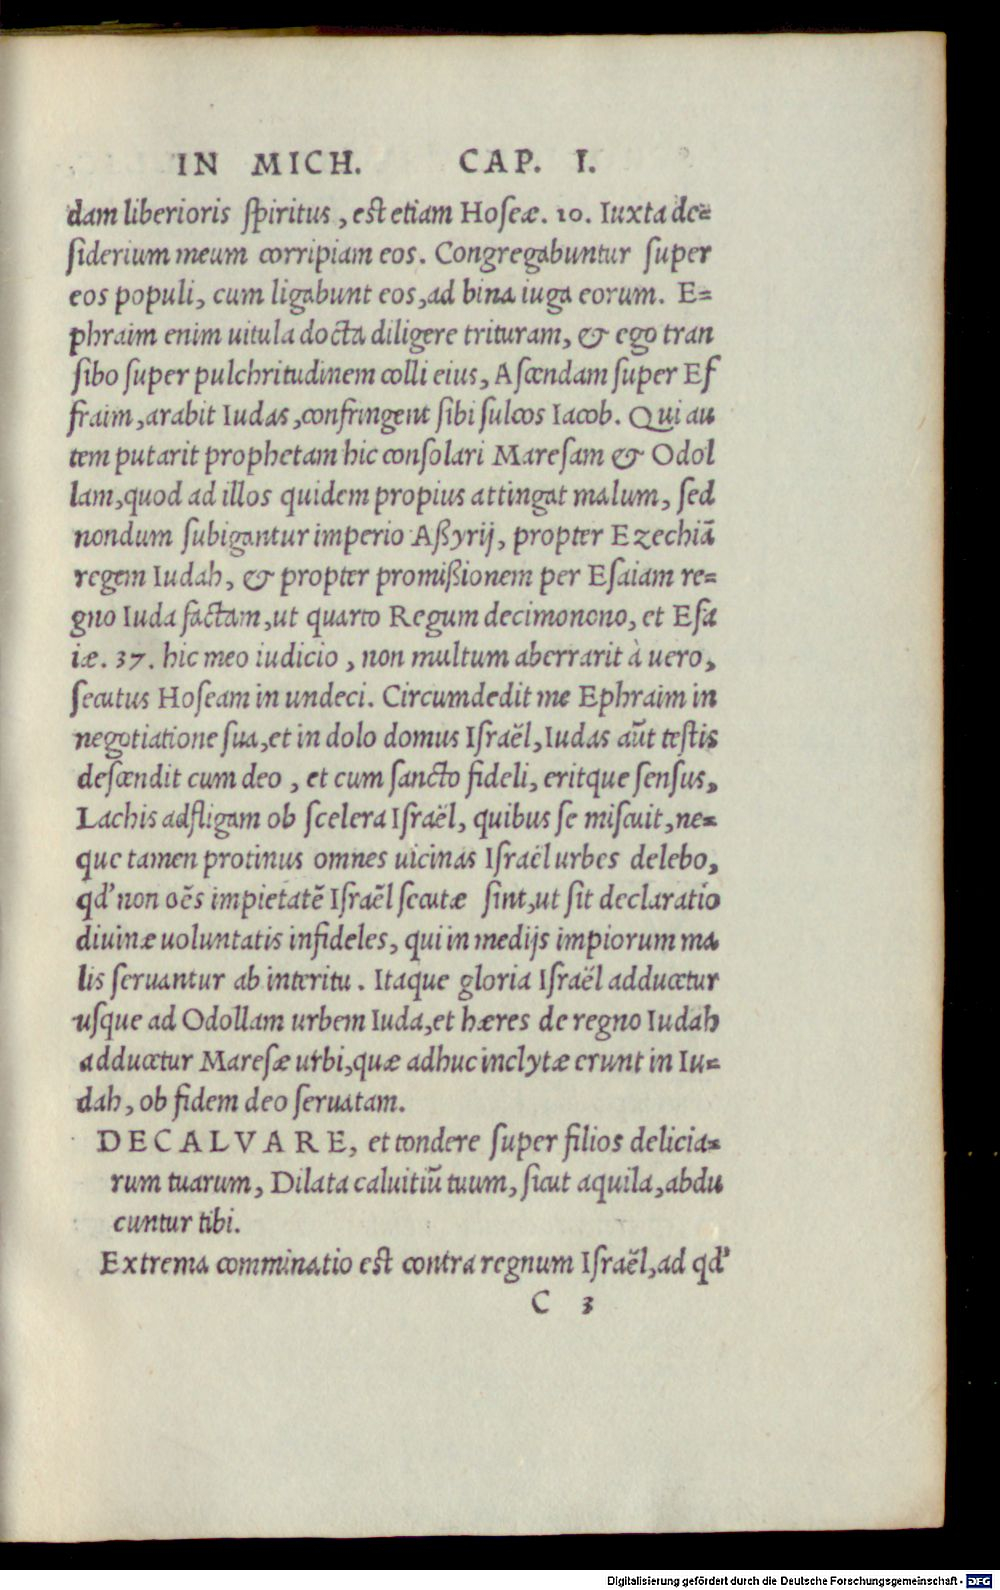 IN MICH. CAP. I.
dam liberioris ſpiritus, est etiam Hoſeæ. 10. Iuxta de=
ſiderium meum corripiam eos. Congregabuntur ſuper
eos populi, cum ligabunt eos, ad bina iuga eorum. E=
phraim enim uitula docta diligere trituram, & ego tran
ſibo ſuper pulchritudinem colli eius, Aſcendam ſuper Ef
fraim, arabit Iudas, confringent ſibi ſulcos Iacob. Qui au
tem putarit prophetam hic conſolari Mareſam & Odol
lam, quod ad illos quidem propius attingat malum, ſed
nondum ſubigantur imperio Aßyrij, propter Ezechiā
regem Iudah, & propter promißionem per Eſaiam re=
gno Iuda factam, ut quarto Regum decimonono, et Eſa
iæ. 37. hic meo iudicio, non multum aberrarit à uero,
ſecutus Hoſeam in undeci. Circumdedit me Ephraim in
negotiatione ſua, et in dolo domus Iſraël, Iudas aūt testis
deſcendit cum deo, et cum ſancto fideli, eritque ſenſus,
Lachis adfligam ob ſcelera Iſraël, quibus ſe miſcuit, ne=
que tamen protinus omnes uicinas Iſraël urbes delebo,
qd' non oēs impietatē Iſraël ſecutæ ſint, ut ſit declaratio
diuinæ uoluntatis infideles, qui in medijs impiorum ma
lis ſeruantur ab interitu. Itaque gloria Iſraël adducetur
uſque ad Odollam urbem Iuda, et hæres de regno Iudah
adducetur Mareſæ urbi, quæ adhuc inclytæ erunt in Iu=
dah, ob fidem deo ſeruatam.
DECALVARE, et tondere ſuper filios delicia=
rum tuarum, Dilata caluitiū tuum, ſicut aquila, abdu
cuntur tibi.
Extrema comminatio est contra regnum Iſraël, ad qd'
C 3
Digitalisierung gefördert durch die Deutsche Forschungsgemeinschaft - DFG